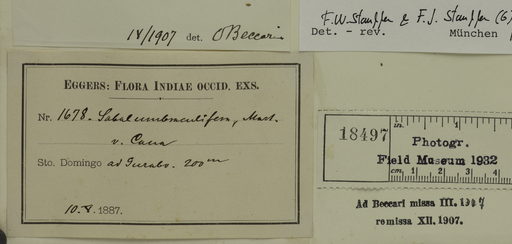 IX/1907 det. OBeccari
F.W. Stauffer & F.J. Stauffer (G)
Det. – rev. München
EGGERS: FLORA INDIAE OCCID. EXS.
Nr. 1678. Sabal umbraculifera, Mart.
v. Cana
Sto. Domingo ad Gurabo. 200 m
10.8.1887.
18497
in. 1
Photogr.
Field Museum 1932
cm. 1 2 3 4
Ad Beccari missa III. 1907
remissa XII. 1907.